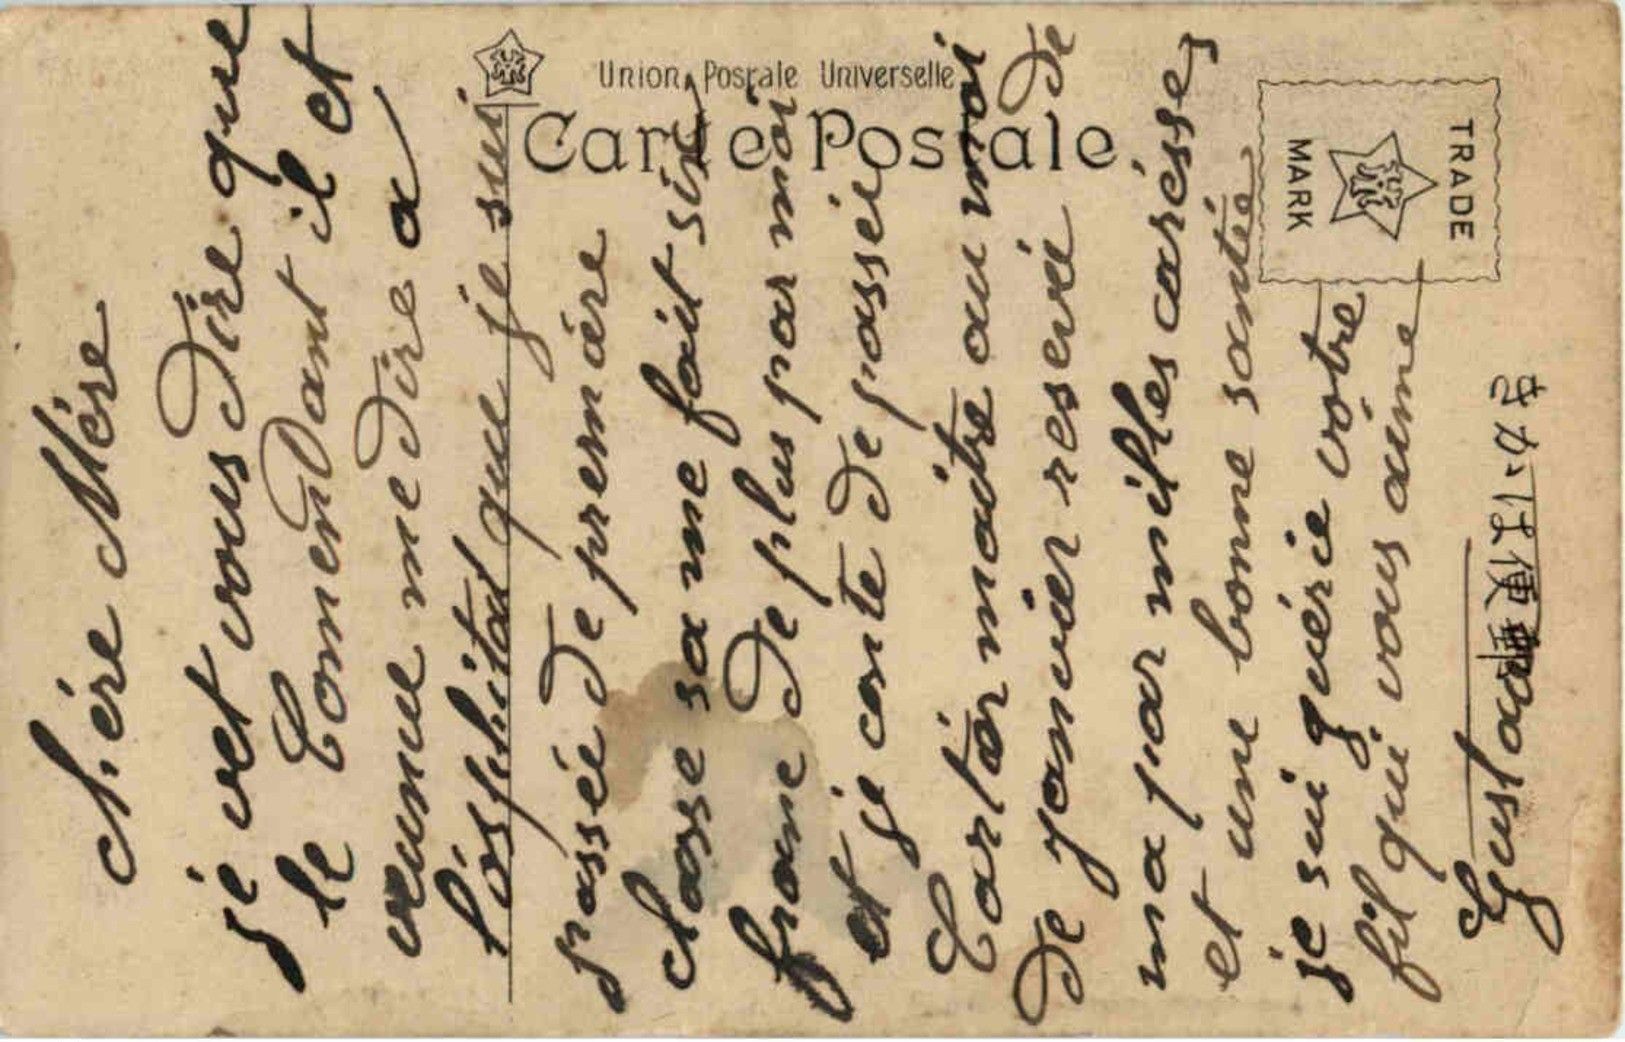 Union Postale Universelle
Carte Postale
TRADE
MARK
きかは便郵
Chère Mère
je vet vous dire que
le Comendant il et
venue me dire a
l'osphital que je suis
passée de première
classe sa me fait six
franc de plus par moi
et je conte de passée
Cartié maître au moi
de janvier reserve de
ma par milles caresse
et une bonne santée
je sui guérie vôtre
fil qui vous aime
Gustave